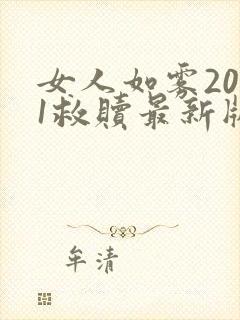 女人如雾20
1救贖最新版
牟清